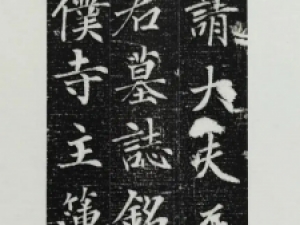 請大夫
君墓誌銘
僕寺主簿